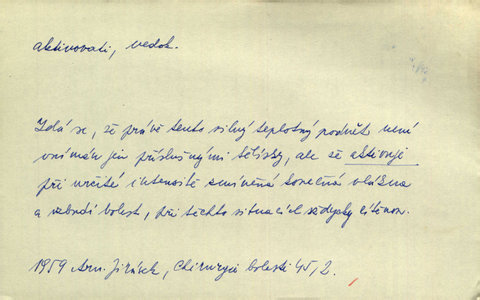 aktivovati, nedok.
Zdá se, že právě tento silný teplotný podnět není
vnímán jen příslušnými tělísky, ale že aktivuje
při určité intensitě zmíněná konečná vlákna
a vzbudí bolest, při těchto situacích vždycky cítěnou.
1959 Arn. Jirásek, Chirurgie bolesti 45/2.